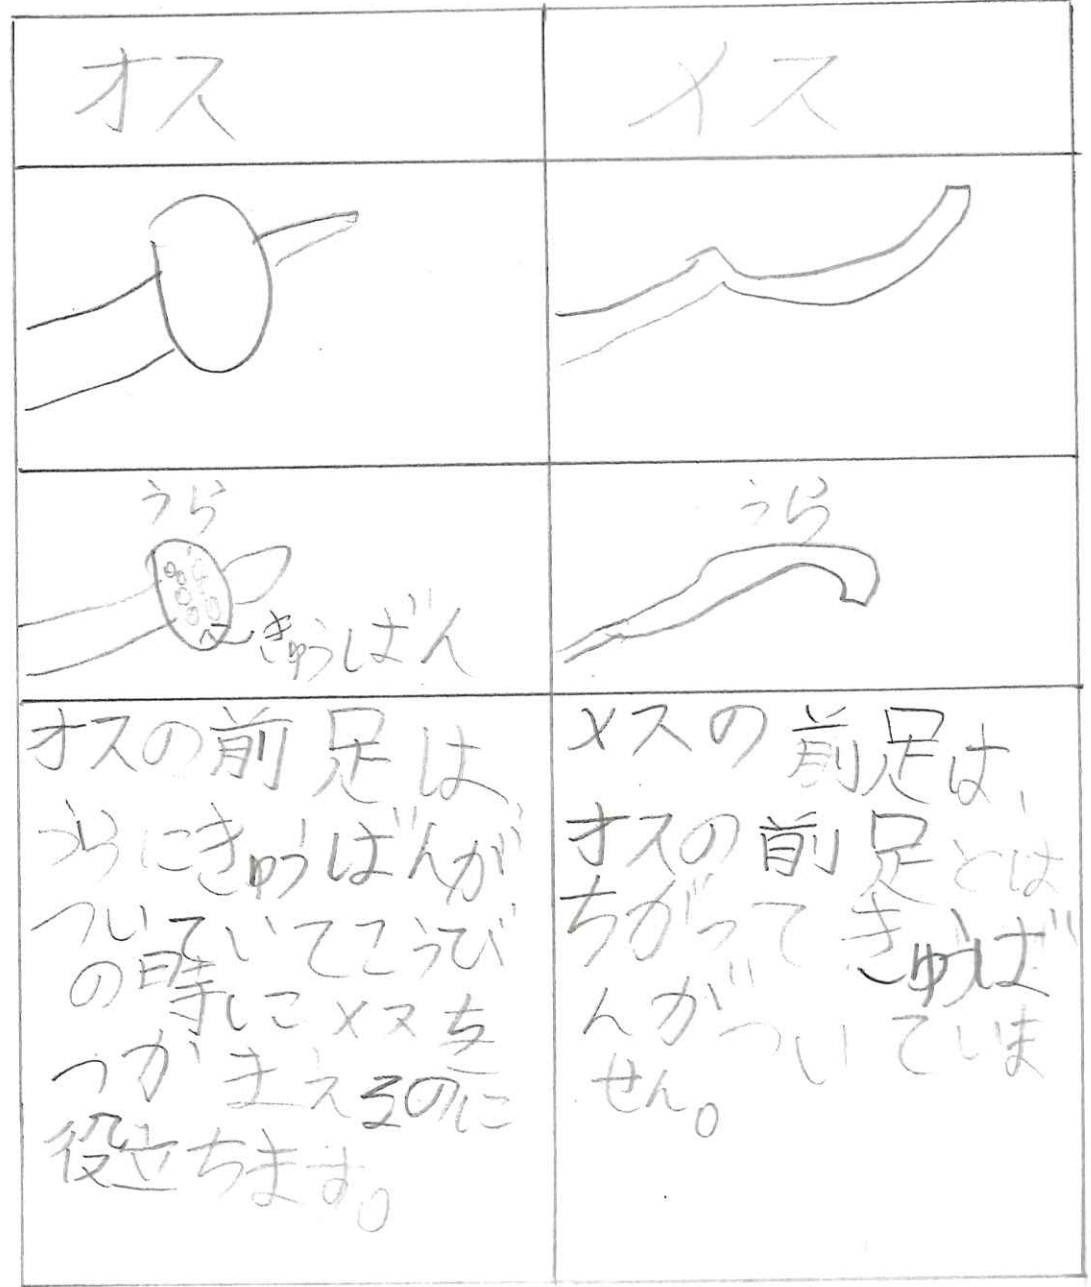 オス
メス
うら
きゅうばん
うら
オスの前足は、
うらにきゅうばんが
ついていてこうび
の時にメスを
つかまえるのに
役立ちます。
メスの前足は、
オスの前足とは
ちがってきゅうば
んがついていま
せん。